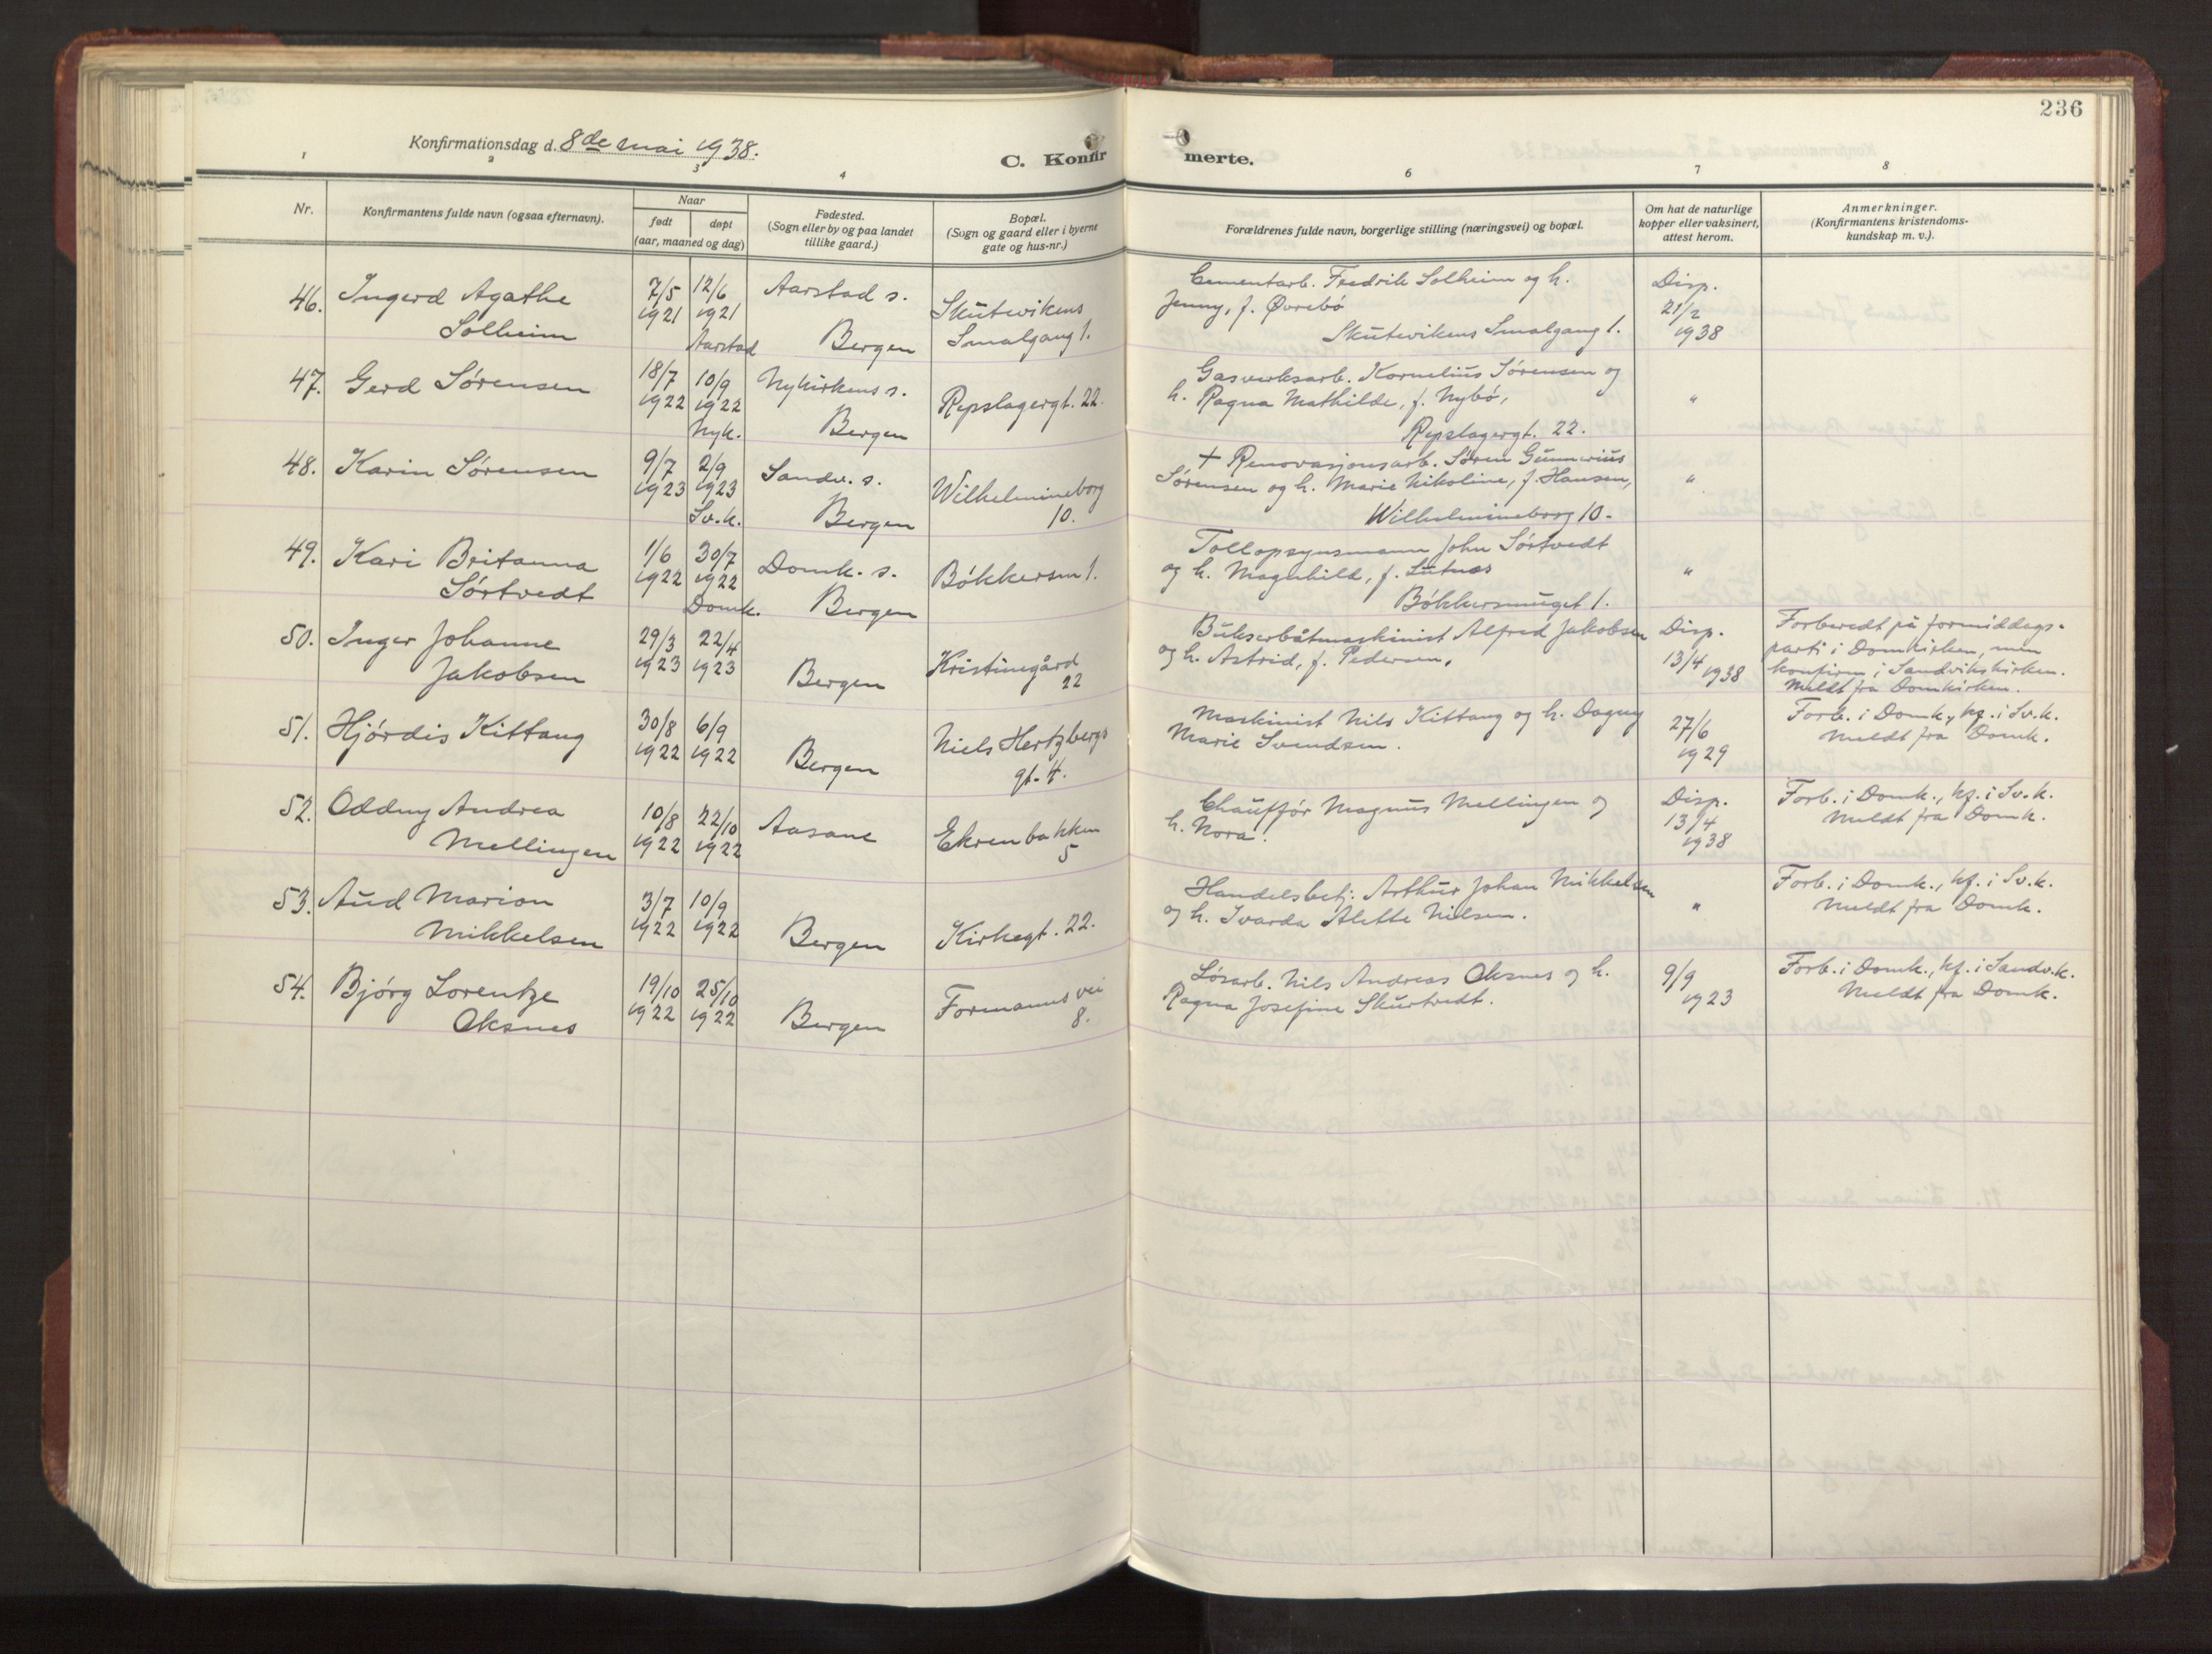 236
Konfirmationsdag d. 8de mai 1938.
C. Konfirmerte.
1 2 3 4 6 7 8
Nr.
Konfirmantens fulde navn (ogsaa efternavn).
Naar
født døpt
(aar, maaned og dag)
Fødested.
(Sogn eller by og paa landet
tillike gaard.)
Bopæl.
(Sogn og gaard eller i byerne
gate og hus-nr.)
Forældrenes fulde navn, borgerlige stilling (næringsvei) og bopæl.
Om hat de naturlige
kopper eller vaksinert,
attest herom.
Anmerkninger.
(Konfirmantens kristendoms-
kundskap m. v.).
46. Ingerd Agathe
Solheim
7/5 1921
12/6 1921
Aarstad
Aarstad s.
Bergen
Skutevikens
Smalgang 1.
Cementarb. Fredrik Solheim og h.
Jenny, f. Øvrebö
Skutevikens Smalgang 1.
Disp.
21/2
1938
47. Gerd Sørensen
18/7 1922
10/9 1922
Nyk.
Nykirkens s.
Bergen
Repslagergt. 22.
Gasverksarb. Kornelius Sørensen og
h. Ragna Mathilde, f. Nybö,
Repslagergt. 22.
"
48. Karin Sørensen
9/7 1923
2/9 1923
Sv.k.
Sandv. s.
Bergen
Wilhelmineborg
10.
+ Renovasjonsarb. Søren Gunnerius
Sørensen og h. Marie Nikoline, f. Hansen,
Wilhelmineborg 10.
"
49. Kari Britanna
Sørtvedt
1/6 1922
30/7 1922
Domk.
Domk. s.
Bergen
Bökkersm 1.
Tollopsynsmann John Sørtvedt
og h. Magnhild, f. Lutnes
Bökkersmuget 1.
"
50. Inger Johanne
Jakobsen
29/3 1923
22/4 1923
Bergen
Kristinegård
22
Bukserbåtmaskinist Alfred Jakobsen
og h. Astrid, f. Pedersen.
Disp.
13/4
1938
Forberedt på formiddags-
parti i Domkirken, men
konfirm. i Sandvikskirken.
Meldt fra Domkirken.
51. Hjördis Kittang
30/8 1922
6/9 1922
Bergen
Niels Hertzbergs
gt. 4.
Maskinist Nils Kittang og h. Dagny
Marie Svendsen.
27/6
1929
Forb. i Domk., kf. i Sv.k.
Meldt fra Domk.
52. Oddny Andrea
Mellingen
10/8 1922
22/10 1922
Aasane
Ekrenbakken
5
Chauffør Magnus Mellingen og
h. Nora.
Disp.
13/4
1938
Forb. i Domk., kf. i Sv.k.
Meldt fra Domk.
53. Aud Marion
Mikkelsen
3/7 1922
10/9 1922
Bergen
Kirkegt. 22.
Handelsbetj. Arthur Johan Mikkelsen
og h. Ivarda Alette Nilsen.
"
Forb. i Domk., kf. i Sv.k.
Meldt fra Domk.
54. Bjørg Lorentze
Oksnes
19/10 1922
25/10 1922
Bergen
Formanns vei
8.
Løsarb. Nils Andreas Oksnes og h.
Ragna Josefine Skurtvedt.
9/9
1923
Forb. i Domk., kf. i Sandv.k.
Meldt fra Domk.